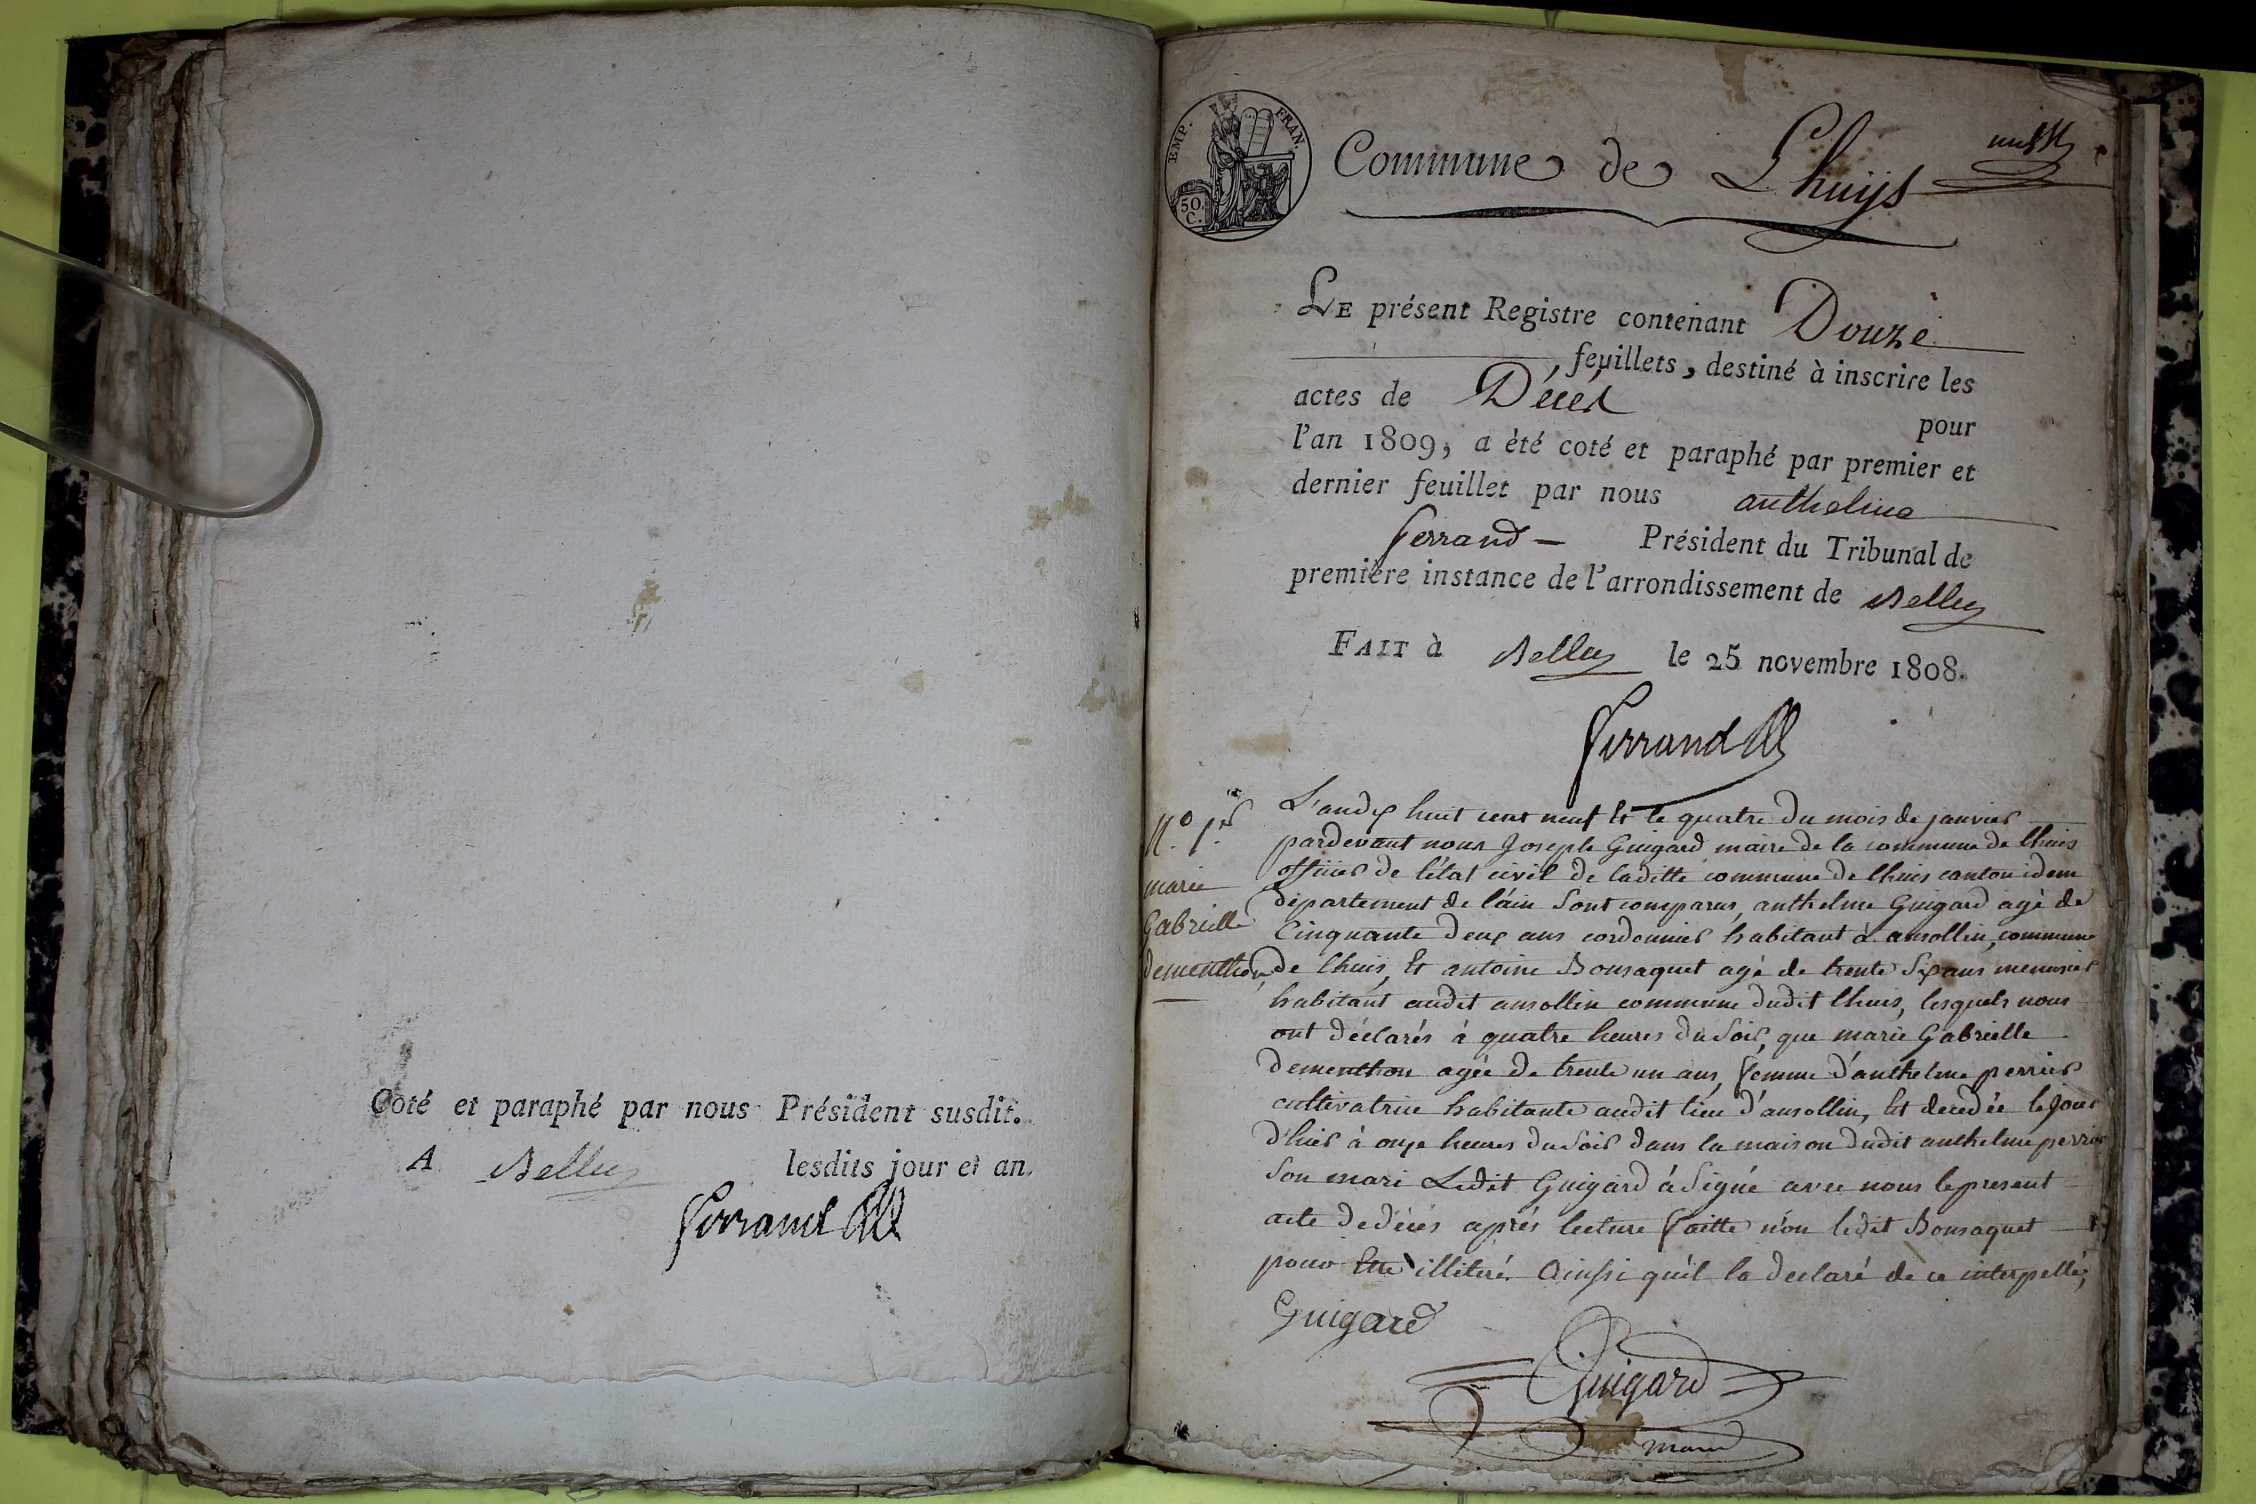 Coté et paraphé par nous Président susdit.
A Belley lesdits jour et an.
Ferrand
EMP. FRAN.
50.
C.
Commune de Lhuys
LE présent Registre contenant Douze
, feuillets, destiné à inscrire les
actes de Décés pour
l'an 1809, a été coté et paraphé par premier et
dernier feuillet par nous anthelme
ferrand — Président du Tribunal de
première instance de l'arrondissement de Belley
FAIT à Belley le 25 novembre 1808.
Ferrand
N.º 1.er
marie
Gabrielle
dementhon
L'an dix huit cent neuf Et le quatre du mois de janvier
pardevant nous Joseph Guigard maire de la commune de lhuis
officier de l'état civil de laditte commune de lhuis canton idem
département de l'ain Sont comparus, anthelme Guigard agé de
Cinquante deux ans cordonnier habitant à ansollin, commune
de lhuis, Et antoine Bonsaquet agé de trente Six ans menusier
habitant audit ansollin commune dudit lhuis, lesquels nous
ont déclarés à quatre heures du Soir, que marie Gabrielle
dementhon agée de trente un ans, femme d'anthelme perrier
cultivatrice habitante audit lieu d'ansollin, Est decedée le jour
d'hier à onze heures du Soir dans la maison dudit anthelme perrier
Son mari Ledit Guigard à Signé avec nous le present
acte de décés aprés lecture faitte non ledit Bonsaquet
pour Etre illiteré. Ainssi qu'il la declaré de ce interpellé,
Guigard
Guigard
maire